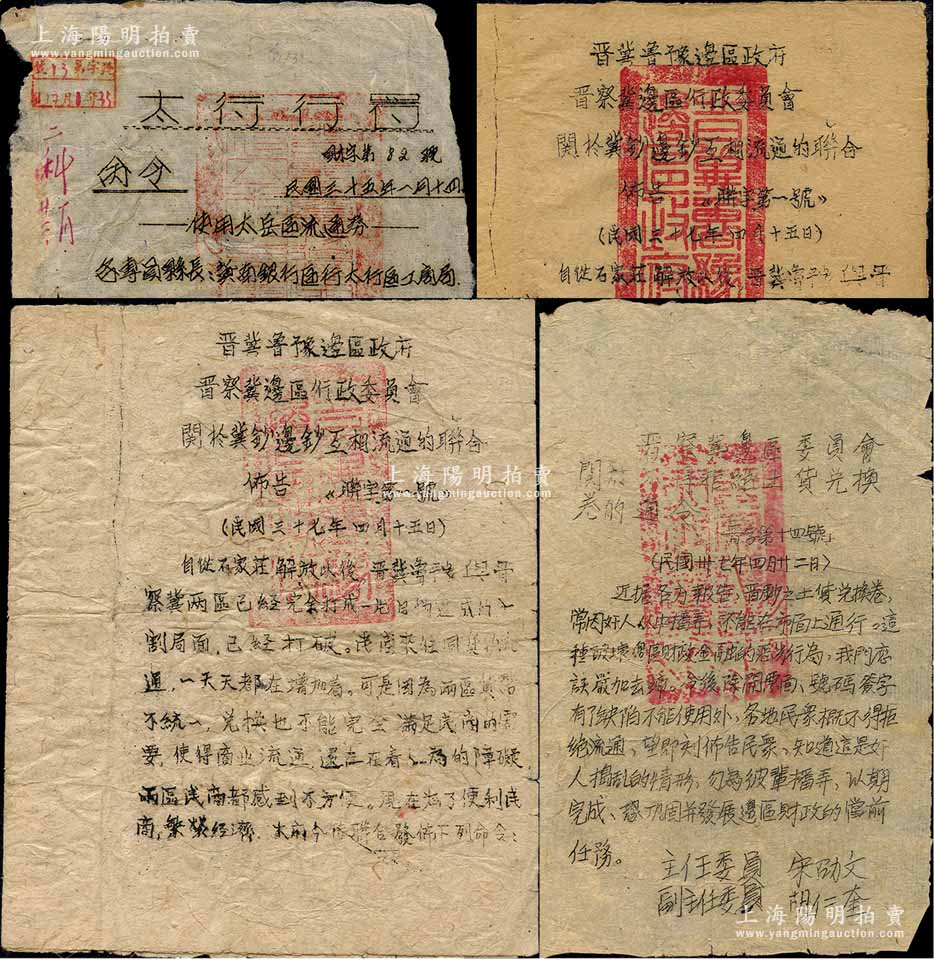 上海陽明拍賣
www.yangmingauction.com
太行行署
命令
財字第82號
民國三十五年一月十四
——使用太岳區流通券——
各專員縣長、冀南銀行區行太行區工商局
二科存
上海陽明拍賣
www.yangmingauction.com
晉冀魯豫邊區政府
晉察冀邊區行政委員會
関於冀鈔邊鈔互相流通的聯合
佈告 《聯字第一號》
(民國三十七年四月十五日)
自從石家莊解放以後 晉冀魯
晉冀魯豫邊區政府
晉察冀邊區行政委員會
関於冀鈔邊鈔互相流通的聯合
佈告 《聯字第一號》
(民國三十七年四月十五日)
自從石家莊解放以後 晉冀魯 晉
察冀兩區已經完全打成一片
割局面,已經打破。民商來往同貨物流
通,一天天都在增加着。可是因為兩區貨幣
不統一,兌換也不能完全滿足民商的需
要,使得商业流通,還存在着人為的障礙,
兩區民商都感到不方便。現在為了便利民
商,繁榮经濟,本府今依聯合發佈下列命令:
上海陽明拍賣
www.yangmingauction.com
晉察冀邊區 委員會
関於 土貨兌換
卷的通令
第十四號
(民國卅七年四月廿二日)
近据各方報告,晉鈔之土貨兌換卷,
常因奸人從中播弄,不能在市面上通行。這
種破壞邊區財政金融的惡劣行為,我們應
該嚴加去 今後除開票面、號碼簽字
有了缺陷不能使用外,各地民衆概不得拒
絕流通,望即刻佈告民衆,知道這是奸
人搗乱的情形,勿為彼輩播弄,以期
完成、鞏固并發展邊區財政的當前
任務。
主任委員 宋劭文
副主任委員 胡仁奎
上海陽明拍賣
www.yangmingauction.com